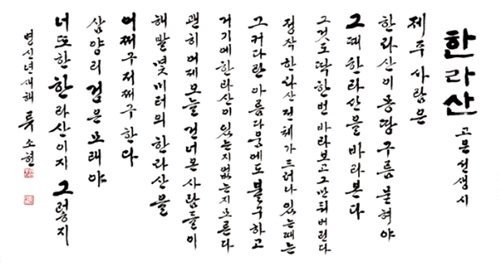 한라산
고은선생시
제주 사람은
한라산이 몽땅 구름 묻혀야
그때 한라산을 바라본다
그것도 딱 한번 바라보고 그만 뒤버린다
정작 한라산 전체가 드러나 있는 때는
그 커다란 아름다움에도 불구하고
거기에 한라산이 있는지 없는지 모른다
괜히 어제 오늘 건너온 사람들이
해발 몇 미터의 한라산을
어쩌구저쩌구 한다
삼양리 검은 모래야
너 또한 한라산이지 그렇지
병신년 새해 소현